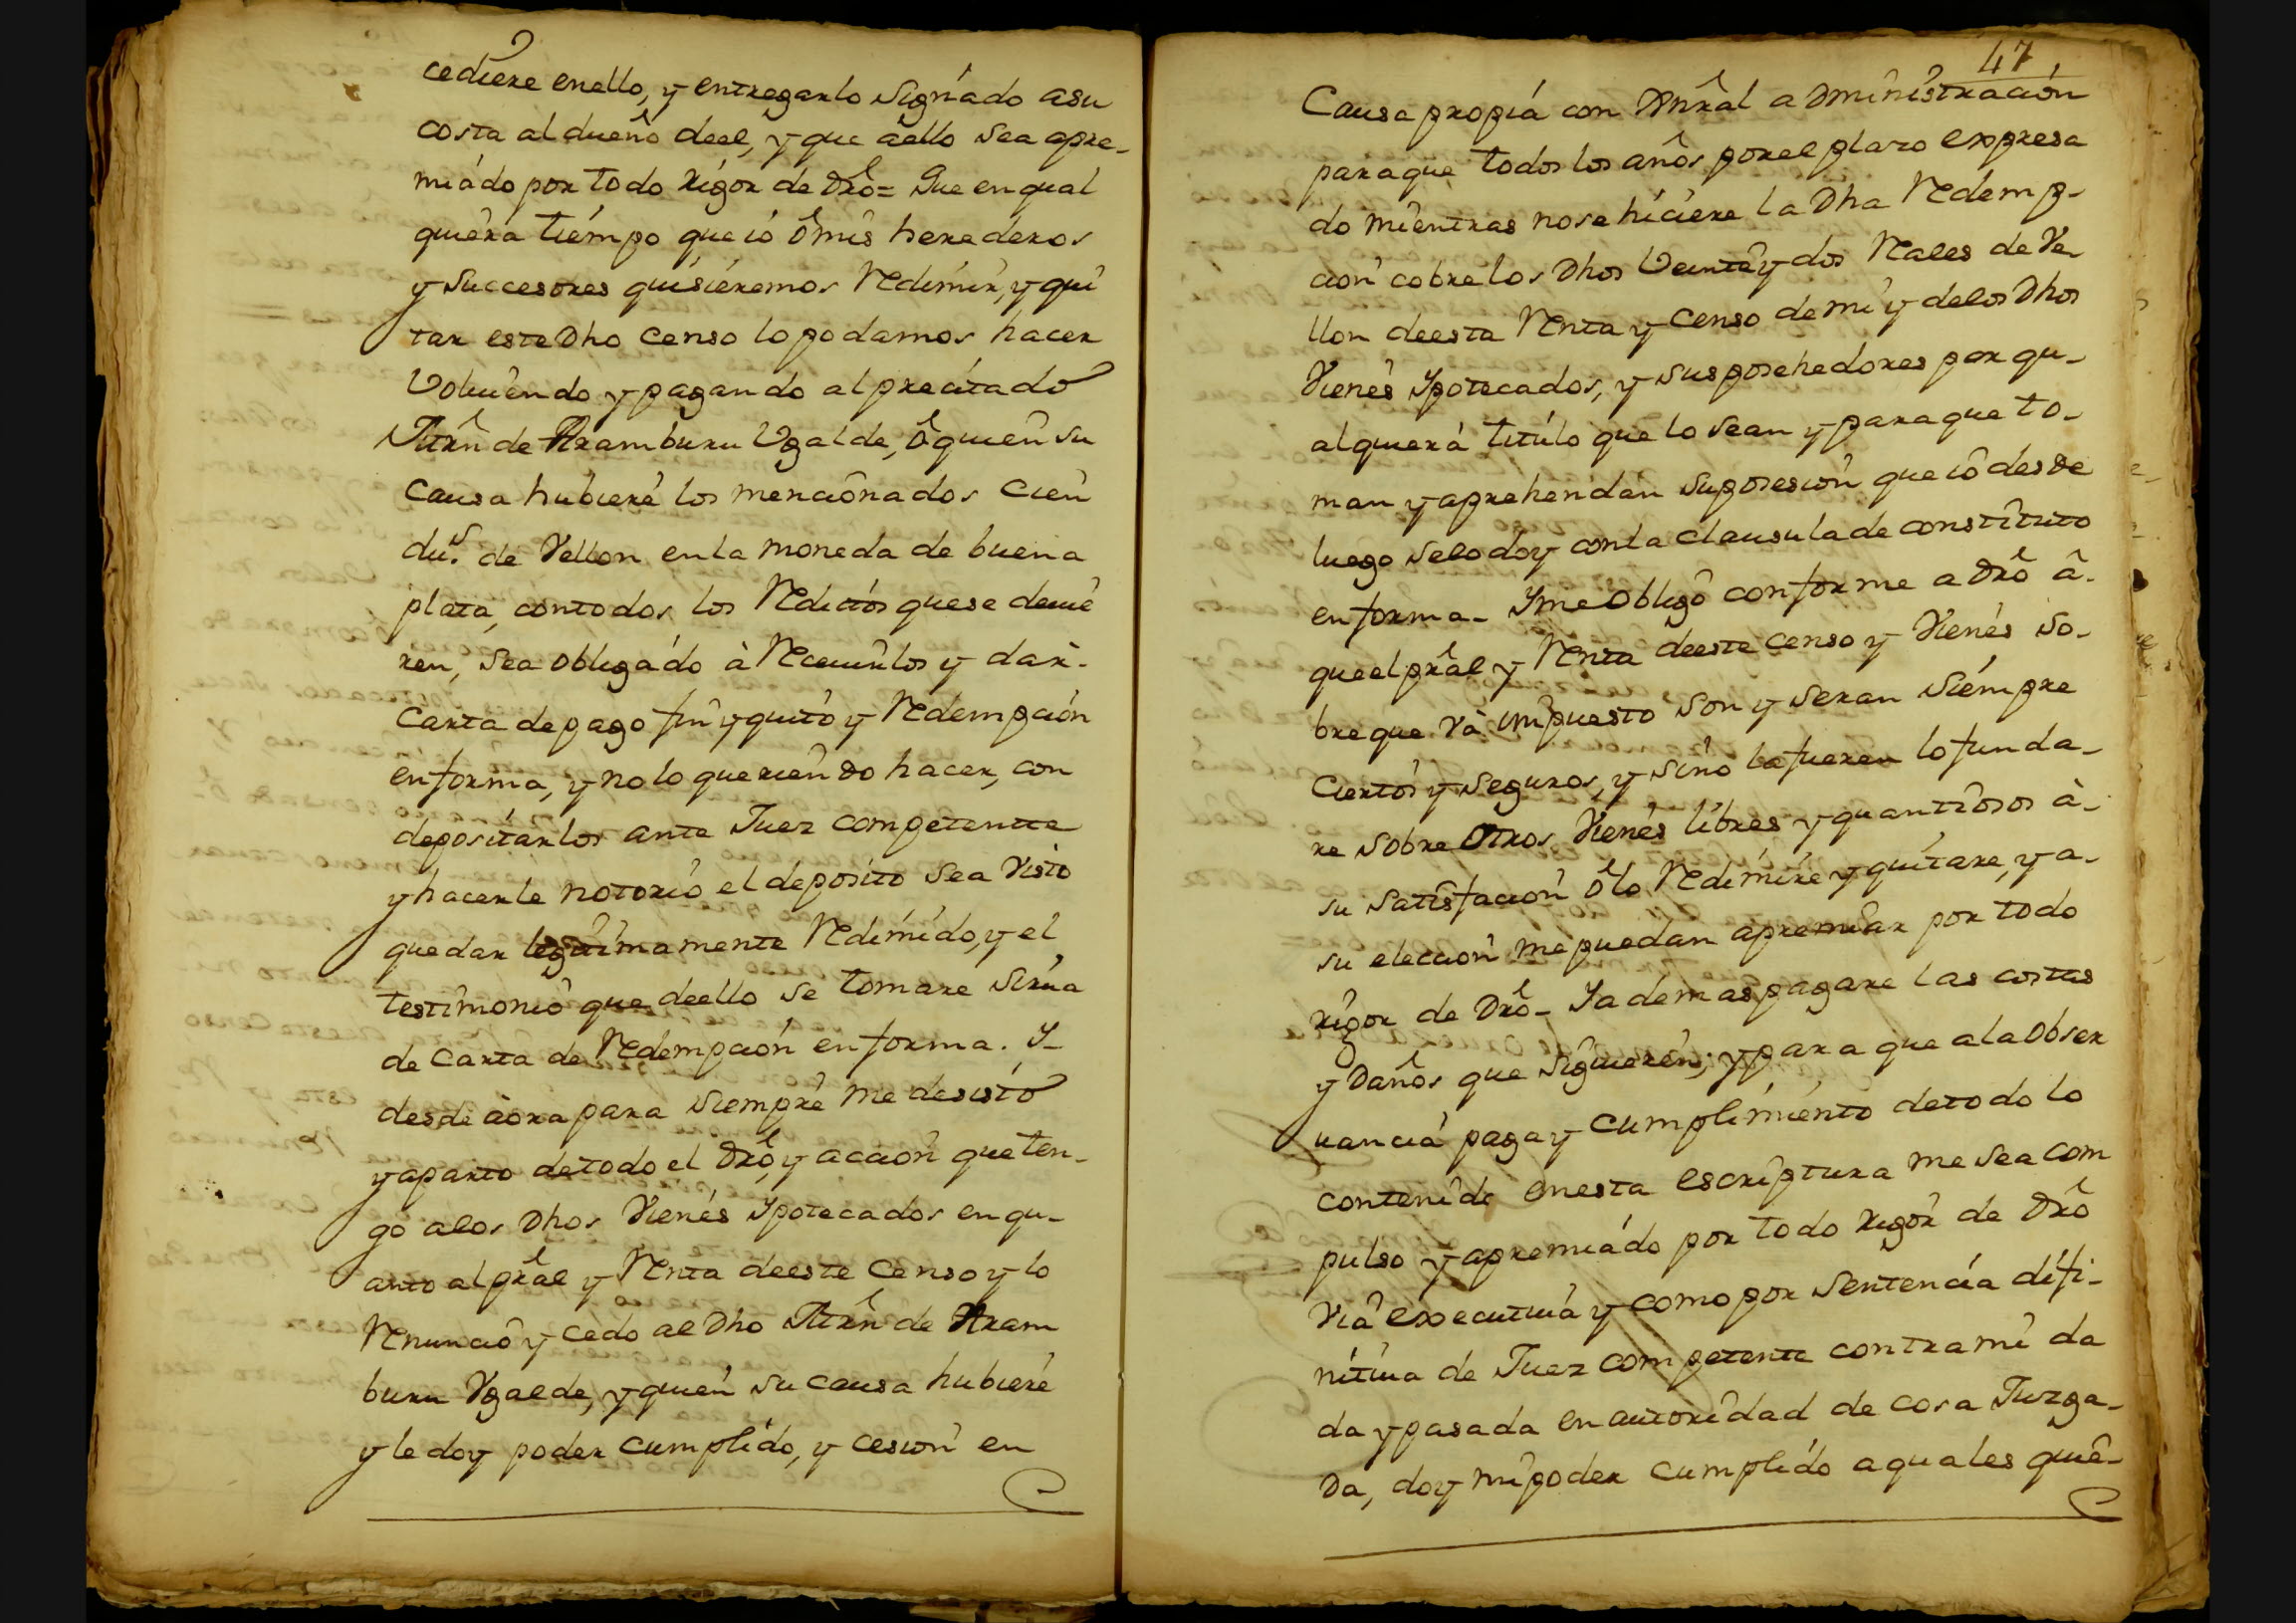 cediere enello, y entregarlo Signádo asu
costa al dueño deel, y que aello sea apre-
miádo por todo Rigor de Drô= Que en qual
quiera tiémpo que ió ô mis herederos
y Succesores quisiéremos Redimir, y qui
tar este Dho Censo lo podamos hacer
Volviendo y pagando al precitado
Mrñ de Aramburu Vgalde, ô quien su
Causa hubieré los mencionados Cien
dus. de Vellon en la moneda de buena
plata, con todos los Reditos que se deuie
ren, sea obligádo à Receuirlos y dar.
Carta de pago fin y quitó y Redempción
en forma, y no lo queriendo hacer, con
depositarlos ante Juez competentte
y hacerle notorio el depósito sea Visto
quedar legitimamente Redimido, y el
testimonio que deello se tomare Sirua
de Carta de Redempción en forma. Y-
desde àora para siempre me desisto
y aparto de todo el Drô, y acción que ten-
go a los Dhos Vienés Ypotecados en qu-
anto al prâl y Renta deeste Censo y lo
Renunció y cedo al Dho Mrñ de Aram
buru Vgalde, y quien su causa hubieré
y le doy poder cumplido, y cesion en
47
Causa propiá con Gnrâl aDministración
para que todos los años por el plazo expresa
do mientras no se hiciere la Dha Redemp-
ción cobre los Dhos Veinte y dos Reales de Ve-
llon deesta Renta y Censo de mi y de los Dhos
Vienés Ypotecados, y sus posehedores por qu-
alquierá titúlo que lo sean y para que to-
man y aprehendan su posesión que ió desde
luego se lo doy con la clausula de constituto
en forma- Y me obligó conforme a Drô â-
que el prâl y Renta deeste censo y Vienés so-
bre que Và impuesto son y seran siémpre
Ciertos y seguros, y sinó lo fueren lo funda-
re sobre otros Vienés libres y quantiosos à-
su Satisfación ô lo Redimire y quitare, y a-
su elección me puedan apremiar por todo
Rigor de Drô- Y ademas pagare las costas
y Daños que siguieren; y para que a la obser
uanciá paga y cumplimiento de todo lo
contenido en esta escriptura me sea com
pulso y apremiádo por todo Rigor de Drô
Viâ executiuá y como por Sentencia difi-
nitiua de Juez competente contra mi da
da y pasada en autoridad de cosa Juzga-
Da, doy mi poder cumplido a quales quiê-